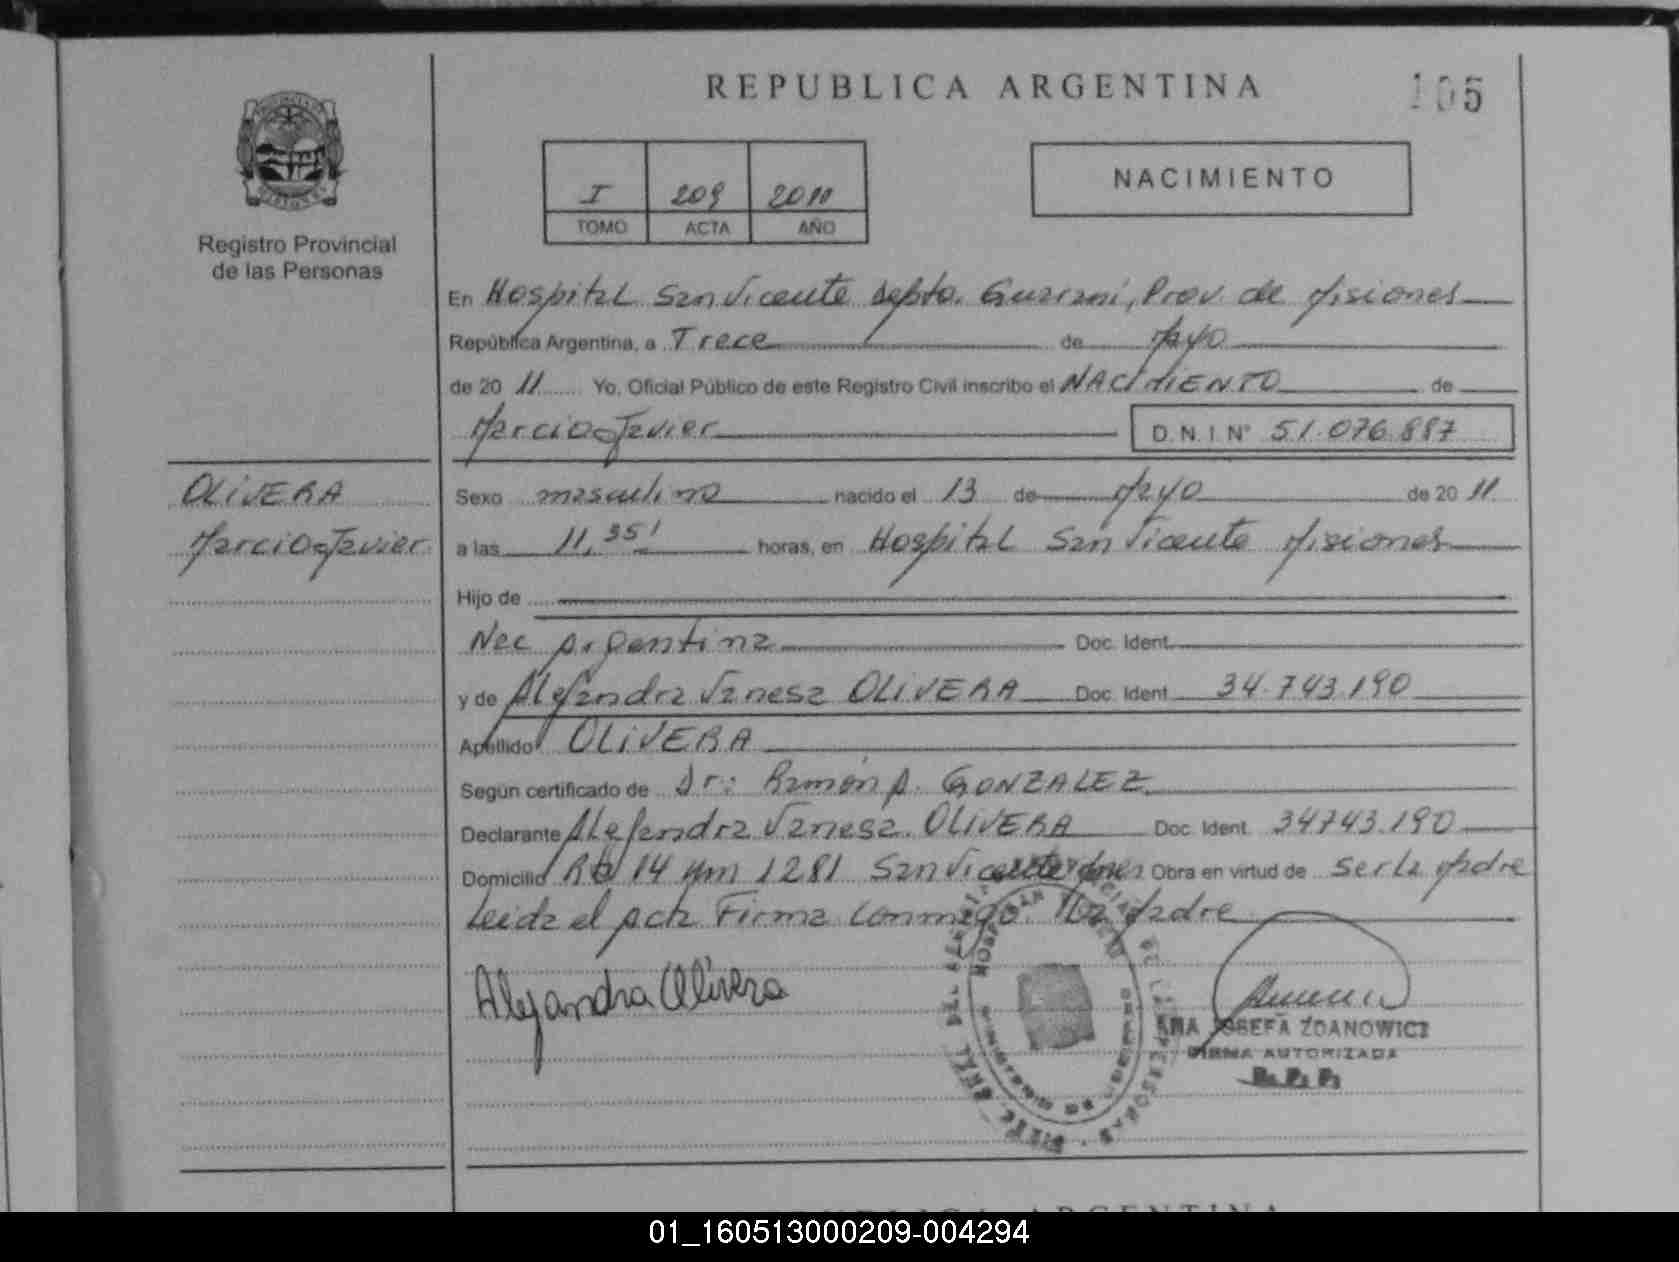 REPUBLICA ARGENTINA
105
I 209 2011
TOMO ACTA AÑO
NACIMIENTO
Registro Provincial
de las Personas
En Hospital San Vicente Depto. Guarani, Prov. de Misiones
República Argentina, a Trece de Mayo
de 20 11 Yo, Oficial Público de este Registro Civil inscribo el NACIMIENTO de
Marcio Javier D.N.I. N° 51.076.887
OLIVERA
Marcio Javier
Sexo masculino nacido el 13 de Mayo de 20 11
a las 11,35' horas, en Hospital San Vicente Misiones
Hijo de
Nac Argentina Doc. Ident.
y de Alejandra Vanesa OLIVERA Doc. Ident. 34.743.190
Apellido OLIVERA
Según certificado de Dr: Ramón A. GONZALEZ
Declarante Alejandra Vanesa OLIVERA Doc. Ident. 34743.190
Domicilio Rta 14 Km 1281 San Vicente Mnes Obra en virtud de ser la Madre
Leida el Acta Firma Conmigo la Madre
Alejandra Olivera
ANA JOSEFA ZDANOWICZ
FIRMA AUTORIZADA
R. P. P.
REPUBLICA ARGENTINA
01_160513000209-004294